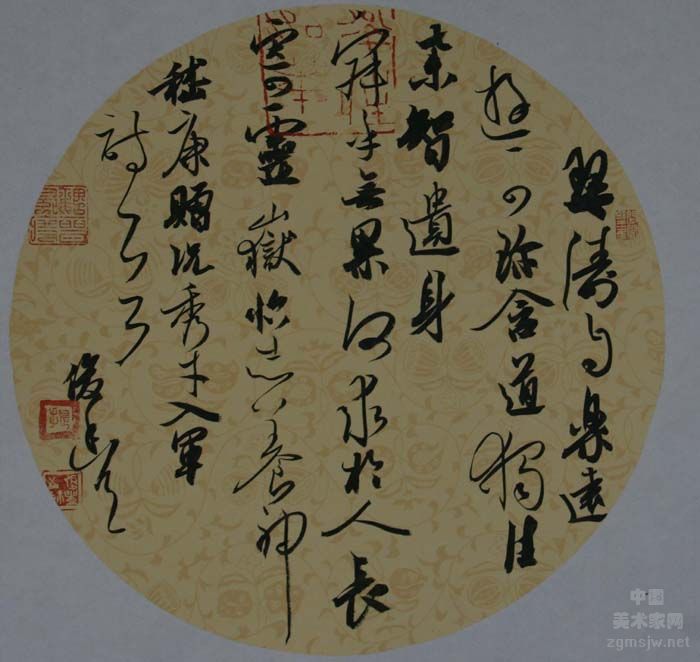 琴詩自樂遠
遊可珍含道獨往
棄智遺身
寂乎無累何求於人長
寄靈嶽怡志養神
嵇康贈兄秀才入軍
詩一首
中国
美术家网
zgmsjw.net